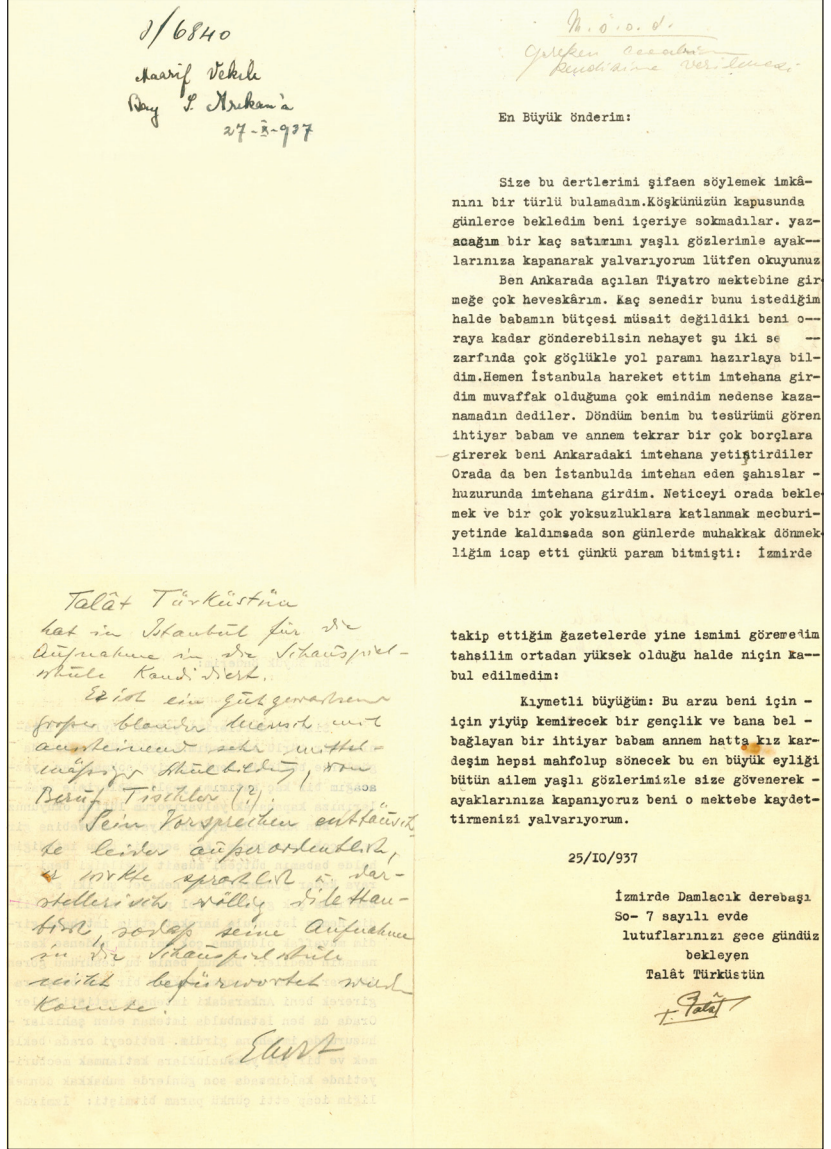 J/6840
Maarif Vekili
Bay S. Arıkan'a
27-X-937
Talât Türküstün
hat in Istanbul für die
Aufnahme in die Schauspiel-
schule Kandidiert.
Er ist ein gutgewachsener
großer blonder Mensch mit
anscheinend sehr mittel-
mäßiger Schulbildung, von
Beruf Tischler (?).
Sein Vorsprechen enttäusch-
te leider außerordentlich,
er wirkte sprachlich u. dar-
stellerisch völlig dilettan-
tisch, sodaß seine Aufnahme
in die Schauspielschule
nicht befürwortet werden
konnte.
Ebert
gereken
kendisine verilmesi
En Büyük önderim:
Size bu dertlerimi şifaen söylemek imkâ-
nını bir türlü bulamadım.Köşkünüzün kapusunda
günlerce bekledim beni içeriye sokmadılar. yaz-
acağım bir kaç satırımı yaşlı gözlerimle ayak--
larınıza kapanarak yalvarıyorum lütfen okuyunuz
Ben Ankarada açılan Tiyatro mektebine gir-
meğe çok heveskârım. Kaç senedir bunu istediğim
halde babamın bütçesi müsait değildiki beni o--
raya kadar gönderebilsin nehayet şu iki se --
zarfında çok göçlükle yol paramı hazırlaya bil-
dim.Hemen İstanbula hareket ettim imtehana gir-
dim muvaffak olduğuma çok emindim nedense kaza-
namadın dediler. Döndüm benim bu tesürümü gören
ihtiyar babam ve annem tekrar bir çok borçlara
girerek beni Ankaradaki imtehana yetiştirdiler
Orada da ben İstanbulda imtehan eden şahıslar -
huzurunda imtehana girdim. Neticeyi orada bekle-
mek ve bir çok yoksuzluklara katlanmak mecburi-
yetinde kaldımsada son günlerde muhakkak dönmek-
liğim icap etti çünkü param bitmişti: İzmirde
takip ettiğim ğazetelerde yine ismimi göremedim
tahsilim ortadan yüksek olduğu halde niçin ka--
bul edilmedim:
Kıymetli büyüğüm: Bu arzu beni için -
için yiyüp kemirecek bir gençlik ve bana bel -
bağlayan bir ihtiyar babam annem hatta kız kar-
deşim hepsi mahfolup sönecek bu en büyük eyliği
bütün ailem yaşlı gözlerimizle size gövenerek -
ayaklarınıza kapanıyoruz beni o mektebe kaydet-
tirmenizi yalvarıyorum.
25/10/937
İzmirde Damlacık derebaşı
So- 7 sayılı evde
lutuflarınızı gece gündüz
bekleyen
Talât Türküstün
T. Talât